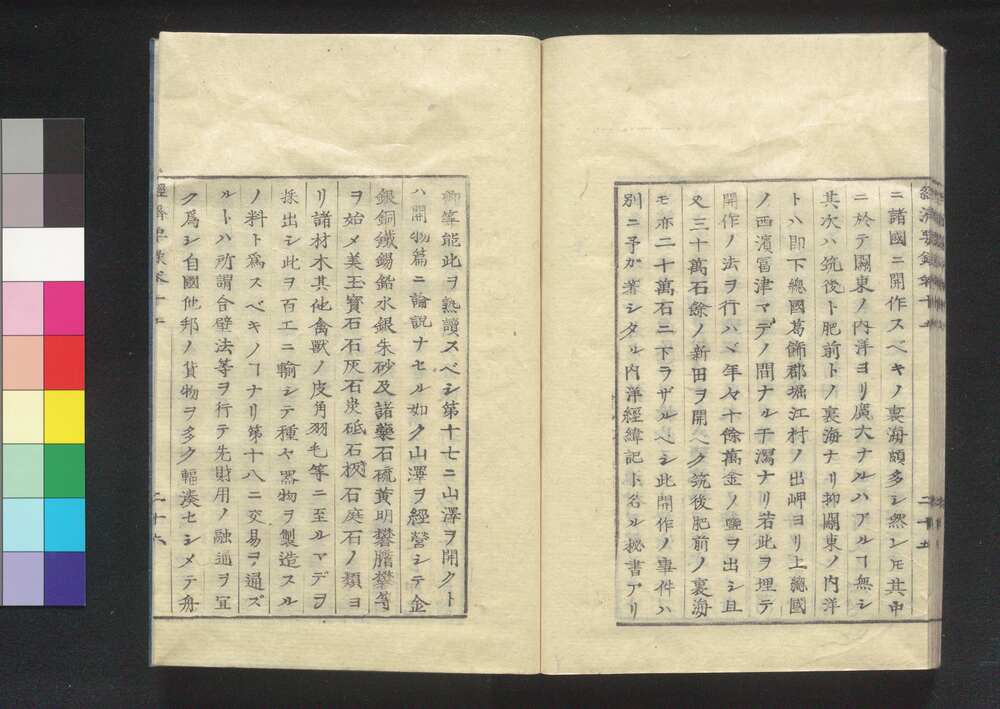 ニ諸國ニ開作スベキノ裏海頗多シ然レ𪜈其中
ニ於テ關東ノ内洋ヨリ廣大ナルハアルヿ無シ
其次ハ筑後ト肥前トノ裏海ナリ抑關東ノ内洋
トハ即下總國葛飾郡堀江村ノ出岬ヨリ上總國
ノ西濱冨津マデノ間ナル干潟ナリ若此ヲ埋テ
開作ノ法ヲ行ハヾ年々十餘萬金ノ鹽ヲ出シ且
又三十萬石餘ノ新田ヲ開ベク筑後肥前ノ裏海
モ亦二十萬石ニ下ラザルベシ此開作ノ事件ハ
別ニ予ガ著シタル内洋經緯記ト名ル秘書アリ
二十五
卿等能此ヲ熟讀スベシ第十七ニ山澤ヲ開クト
ハ開物篇ニ論説ナセル如ク山澤ヲ經營シテ金
銀銅鐵錫鉛水銀朱砂及諸藥石硫黄明礬膽礬等
ヲ始メ美玉寳石石灰石炭砥石板石庭石ノ類ヨ
リ諸材木其他禽獸ノ皮角羽毛等ニ至ルマデヲ
採出シ此ヲ百工ニ輸シテ種々器物ヲ製造スル
ノ料ト爲スベキノヿナリ第十八ニ交易ヲ通ズ
ルトハ所謂合璧法等ヲ行テ先財用ノ融通ヲ宜
ク爲シ自國他邦ノ貨物ヲ多ク輻湊セシメテ舟
二十六